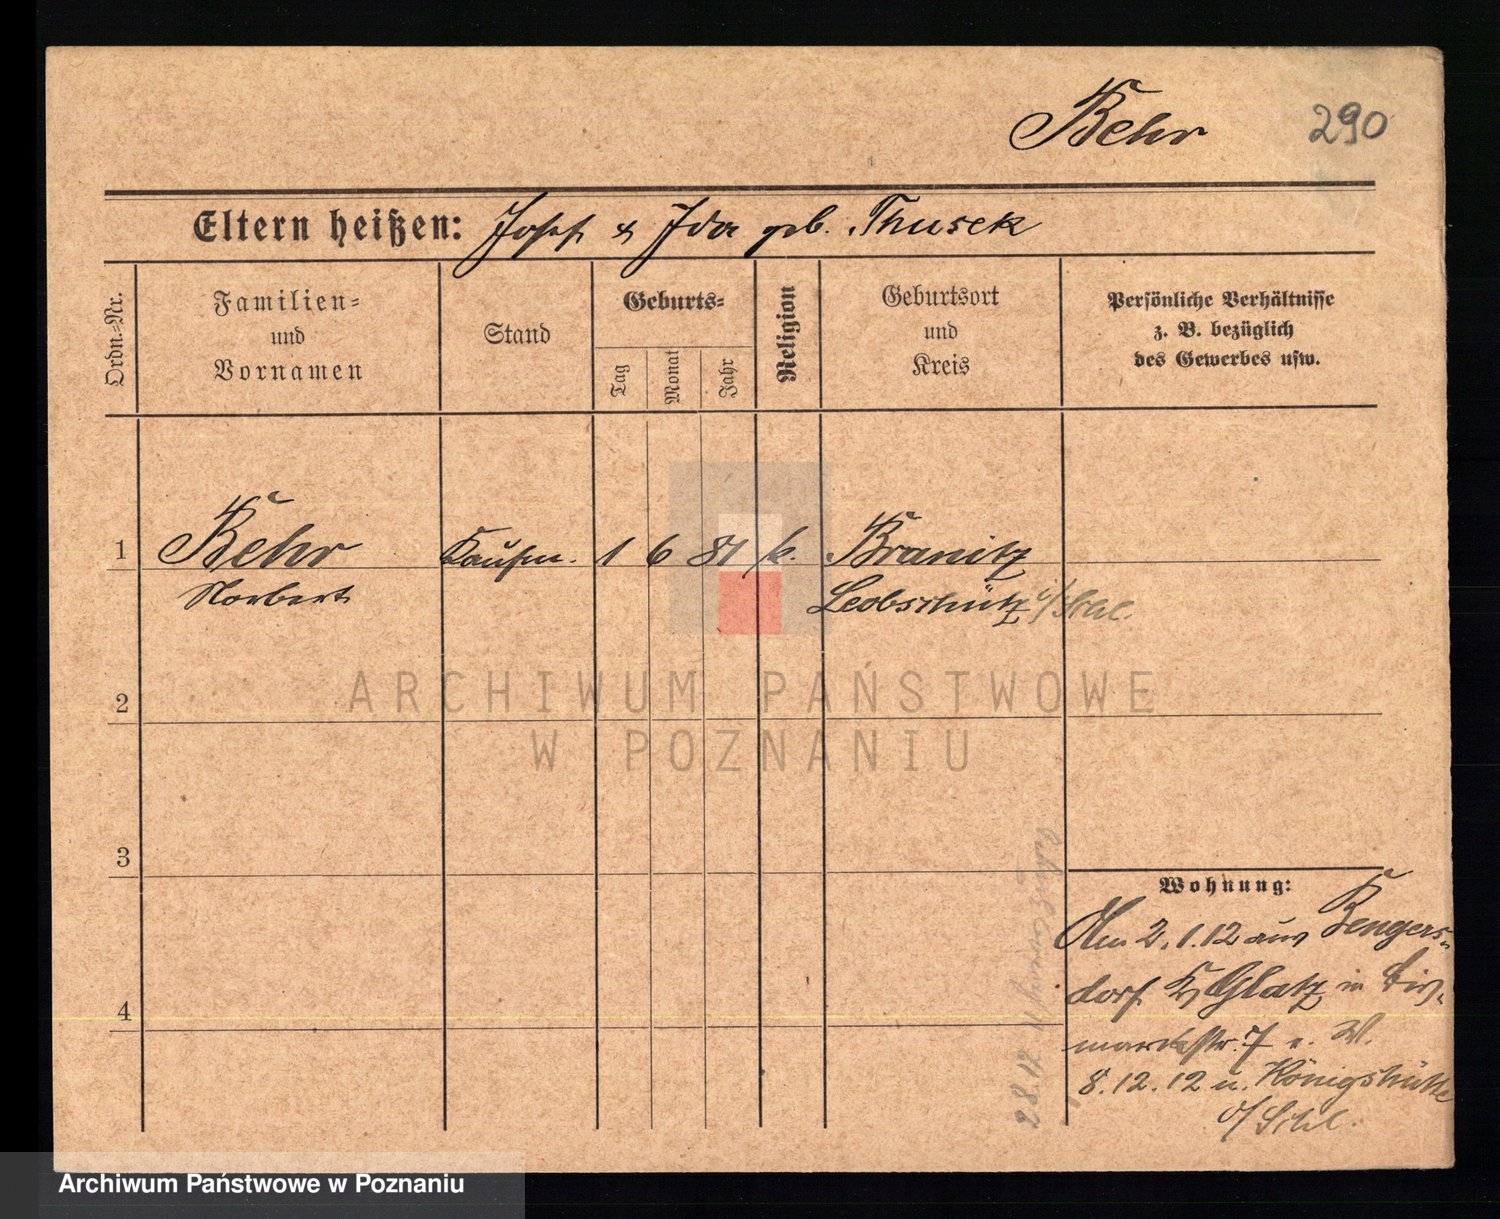 Behr 290
Eltern heißen: Josef & Ida geb. Thusek
Ordn.=Nr.
Familien=
und
Vornamen
Stand
Geburts=
Tag
Monat
Jahr
Religion
Geburtsort
und
Kreis
Persönliche Verhältnisse
z. B. bezüglich
des Gewerbes usw.
1 Behr Kaufm. 1 6 81 k. Branitz
Norbert Leobschütz o/Schl.
2
ARCHIWUM PAŃSTWOWE
W POZNANIU
3
Wohnung:
Am 2.1.12 aus Bengers-
dorf Kr Glatz in Bis-
4
marckstr. 7 b. W.
8.12.12 n. Königshütte
o/Schl.
28.12.11
Archiwum Państwowe w Poznaniu